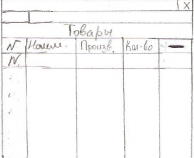 X
Товары
№ Наимен. Произв. Кол-во —
N